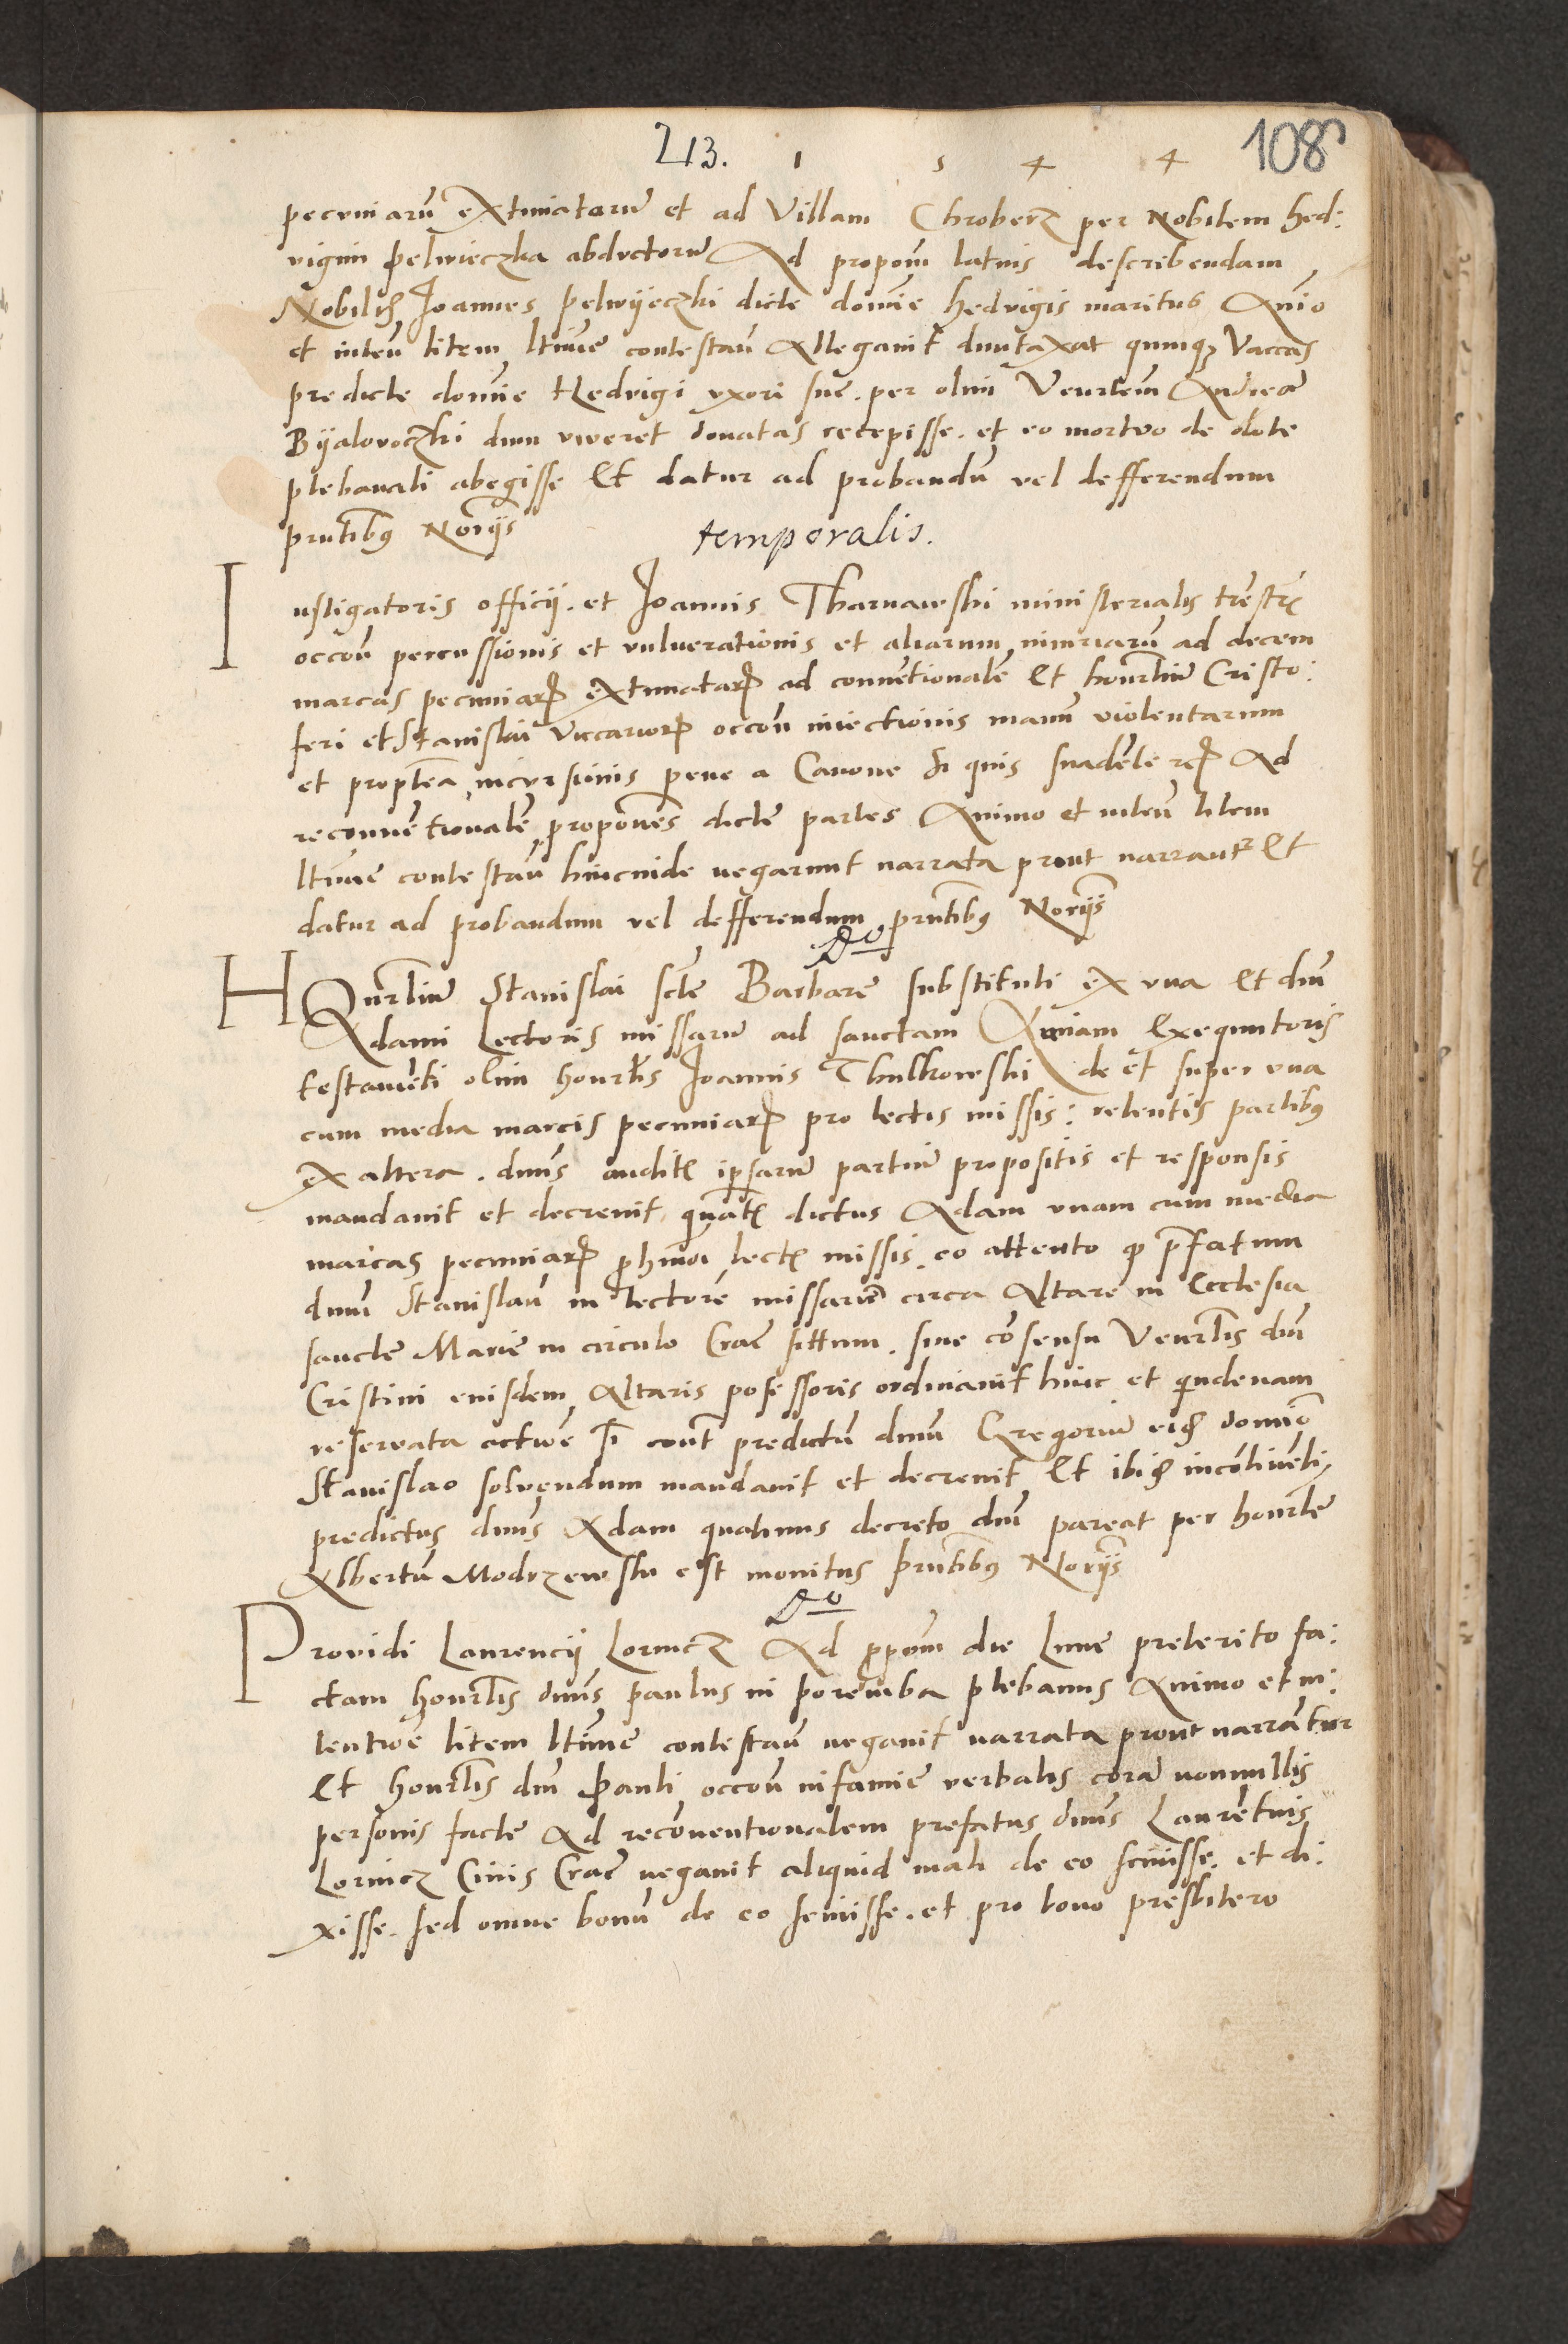 213. 1 5 4 4 108
pecuniarū extimatarū et ad Villam Chroberz per Nobilem Hed:
vigim Pelwieczka abductorū Ad proponī latius describendam
Nobilis Joannes Pelwyeczki dicte domīe Hedvigis maritus Anīo
et inteñ litem ltīme contestań Allegavit duntaxat quinqz Vaccas
predicte domīe Hedvigi uxori sue. per olim Venrlem Andreā
Byalovoczki dum viveret donatas recepisse. et eo mortuo de dote
plebanali abegisse Et datur ad probandū vel defferendum
pn̄tibus Norijs
temporalis.
Instigatoris officij. et Joannis Tharnawski ministerialis trēstrs
occoñ percussionis et vulnerationis et aliarum iniuriarū ad decem
marcas pecuniarz extimatarz ad conventionalē Et honrliū Cristo:
feri et Stanislai Vicariorz occoñ iniectionis manū violentarum
et propterea incursionis pene a Canone si quis suadēte rz Ad
reconvētionalē propones dicte partes Animo et inteñ litem
ltīme contestañ hincinde negarunt narrata prout narrantr Et
datur ad probandum vel defferendum pn̄tibus Norijs
Do
Honrliū Stanislai scte Barbare substituti ex una Et dnī
Adami Lectoris missarū ad sanctam Annam Exequutoris
testamēti olim honrlis Joannis Thulkowski de et super una
cum media marcis pecuniarz pro lectis missis: retentis partibus
ex altera. dnūs auditis ipsarū partiū propositis et responsis
mandavit et decrevit quats dictus Adam unam cum media
marcas pecuniarz pro hmōi lectis missis. eo attento qz prefatum
dnūm Stanislaū in lectorē missarū circa Altare in Ecclesia
sancte Marie in circulo Crac̄ sittum. sine cōsensu Venrlis dnī
Cristini eiusdem Altaris possessoris ordinavit hinc et quindenam
reservata actiōe si cont predictū dnūm Gregoriū eidz domīo
Stanislao solvendum mandavit et decrevit Et ibidz incōtinēti
predictus dnūs Adam quatinus decreto dnī pareat per honrlē
Albertū Modrzewski est monitus Pn̄tibus Norijs
Do
Providi Laurencij Lorincz Ad proponī die Lune preterito fa:
ctam honrlis dnūs Paulus in Poremba plebanus Animo et in:
tentiōe litem ltīme contestañ negavit narrata prout narrātur
Et honrlis dnī Pauli occoñ infamie verbalis corā nonnullis
personis facte Ad recōventionalem prefatus dnūs Laurētius
Lorincz Civis Crac̄ negavit aliquid mali de eo scivisse. et di:
xisse. sed omne bonū de eo scivisse. et pro bono presbitero